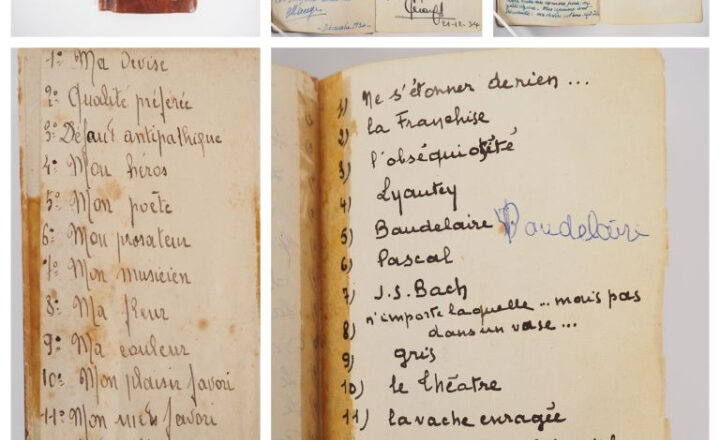 21-12-34
1º Ma Devise
2º Qualité préférée
3º Défaut antipathique
4º Mon héros
5º Mon poète
6º Mon prosateur
7º Mon musicien
8º Ma fleur
9º Ma couleur
10º Mon plaisir favori
11º Mon favori
1) Ne s'étonner de rien ...
2) la Franchise
3) l'obséquiosité
4) Lyautey
5) Baudelaire Baudelaire
6) Pascal
7) J.S. Bach
8) n'importe laquelle ... mais pas
dans un vase ...
9) gris
10) le théatre
11) la vache enragée